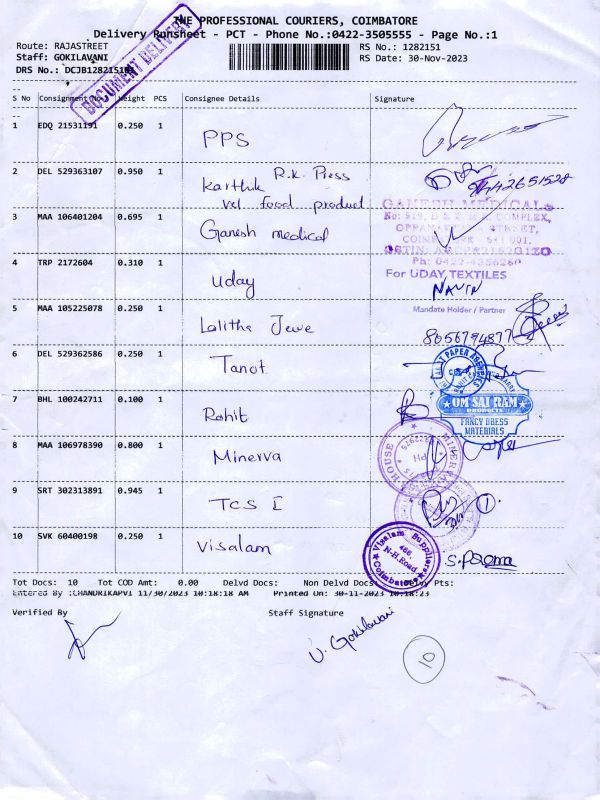 THE PROFESSIONAL COURIERS, COIMBATORE
Delivery Runsheet - PCT - Phone No.:0422-3505555 - Page No.:1
Route: RAJASTREET
RS No.: 1282151
Staff: GOKILAVANI
RS Date: 30-Nov-2023
DRS No.:
DOCUMENT DELIVERY
S No Consignment No. Weight PCS Consignee Details Signature
1 EDQ 21531191 0.250 1 PPS
2 DEL 529363107 0.950 1 Karthik R.K. Press
vel food product
3 MAA 106401204 0.695 1 Ganesh medical
GANESH MEDICALS
COMPLEX,
STREET,
641 001.
4 TRP 2172604 0.310 1 Uday
For UDAY TEXTILES
NAVIN
Mandate Holder / Partner
5 MAA 105225078 0.250 1 Lalitha Jewe
8056794877
6 DEL 529362586 0.250 1 Tanot
7 BHL 100242711 0.100 1 Rohit
OM SAI RAM
PRODUCTS
FANCY DRESS
MATERIALS
8 MAA 106978390 0.800 1 Minerva
9 SRT 302313891 0.945 1 TCS I
10 SVK 60400198 0.250 1 Visalam
Visalam Supplier
466,
N.H.Road,
Coimbatore
Tot Docs: 10 Tot COD Amt: 0.00 Delvd Docs: Non Delvd Docs: Delvy Pts:
Entered By :CHANDRIKAPVI 11/30/2023 10:18:18 AM Printed On: 30-11-2023 10:18:23
Verified By Staff Signature
V. Gokilavani
10